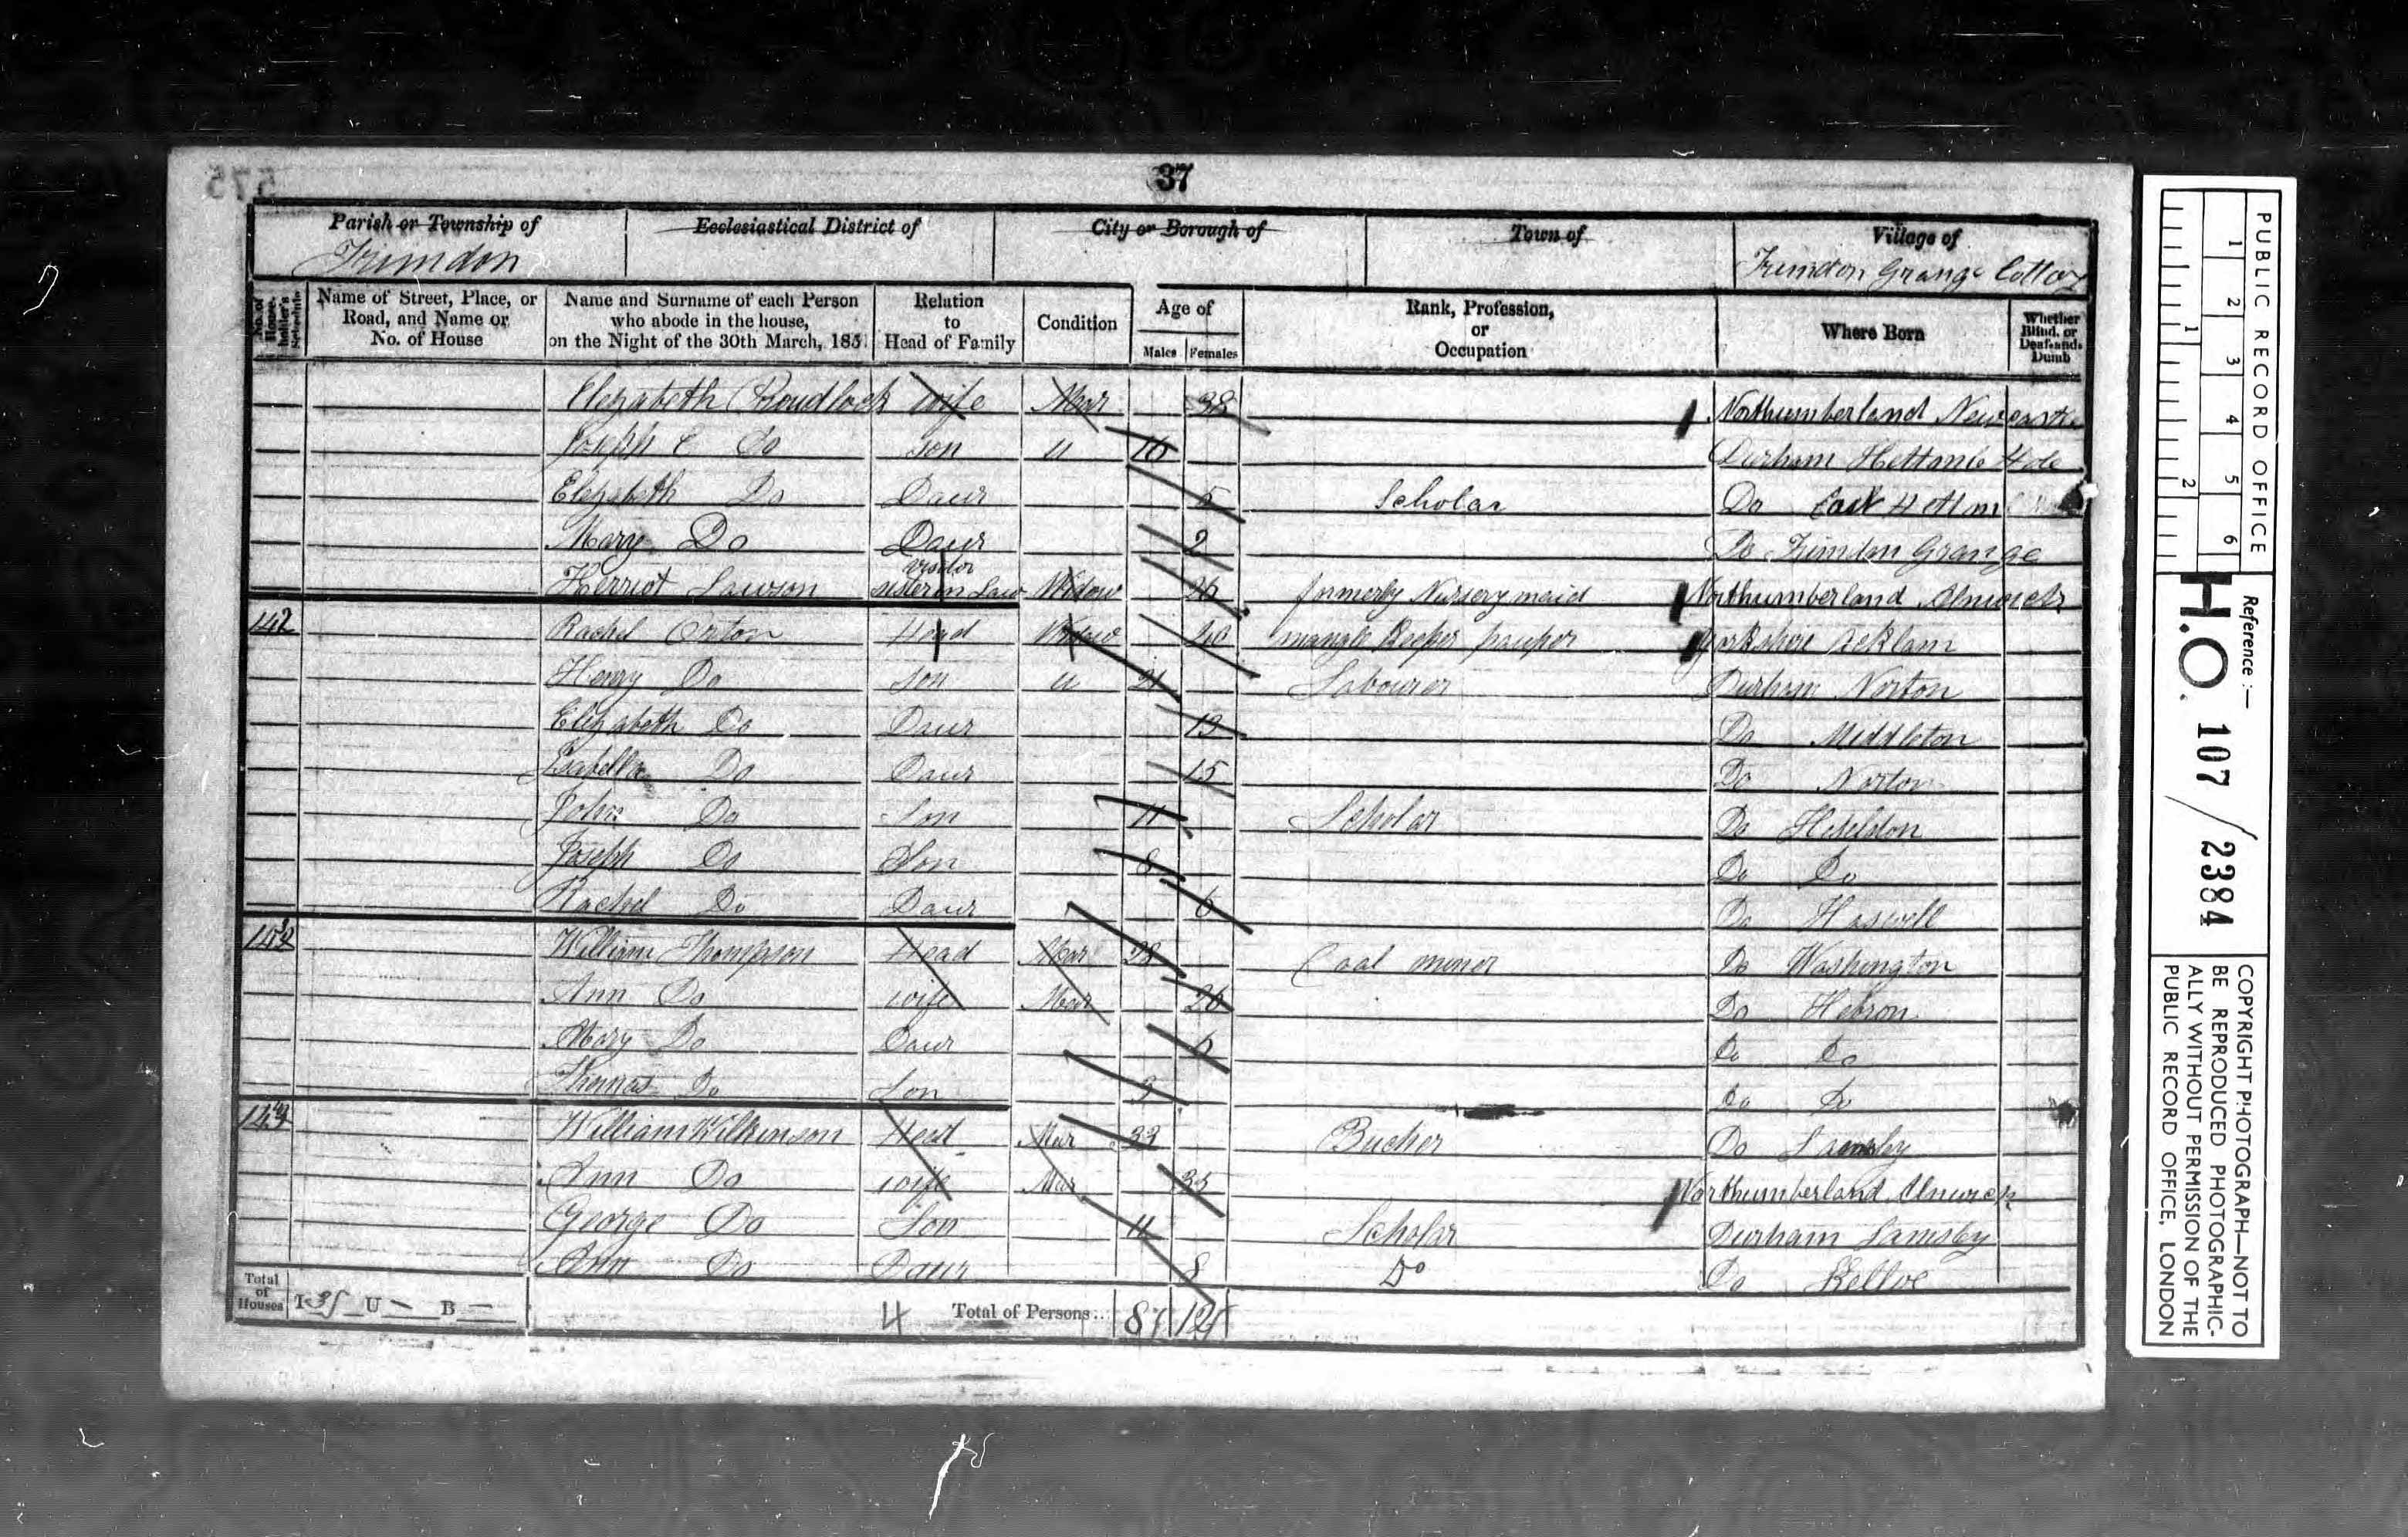 37
Parish or Township of Ecclesiastical District of City or Borough of Town of Village of
Trimdon Trimdon Grange
No. of House-holder's Schedule Name of Street, Place, or Road, and Name or No. of House Name and Surname of each Person who abode in the house, on the Night of the 30th March, 185 Relation to Head of Family Condition Age of Males Females Rank, Profession, or Occupation Where Born Whether Blind, or Deaf-and-Dumb
Elizabeth wife Mar 38 Northumberland Newcastle
Joseph C Do son U 10 Durham
Elizabeth Do Daur 5 Scholar Do East Hetton
Mary Do Daur 2 Do Trimdon Grange
visitor
Herriot Lawson sister in Law Widow 26 formerly Nursery maid Northumberland Alnwick
142 Rachel Orton Head Widow 40 mangle Keeper pauper Yorkshire Acklam
Henry Do son U 21 Labourer Durham Norton
Elizabeth Do Daur 13 Do Middleton
Isabella Do Daur 15 Do Norton
John Do Son 11 Scholar Do Heseldon
Joseph Do Son 8 Do Do
Rachel Do Daur 6 Do Haswell
143 William Thompson Head Mar 28 Coal miner Do Washington
Ann Do wife Mar 26 Do Hebron
Mary Do Daur 5 Do Do
Thomas Do Son 3 Do Do
144 William Wilkinson Head Mar 33 Bucher Do Lamsley
Ann Do wife Mar 35 Northumberland Alnwick
George Do Son 11 Scholar Durham Lamsley
Ann Do Daur 8 Do Do Kelloe
Total of Houses I 3 U — B — 4 Total of Persons... 8 12
PUBLIC RECORD OFFICE
1 2 3 4 5 6
1 2
Reference :-
H.O. 107 / 2384
COPYRIGHT PHOTOGRAPH—NOT TO
BE REPRODUCED PHOTOGRAPHIC-
ALLY WITHOUT PERMISSION OF THE
PUBLIC RECORD OFFICE, LONDON